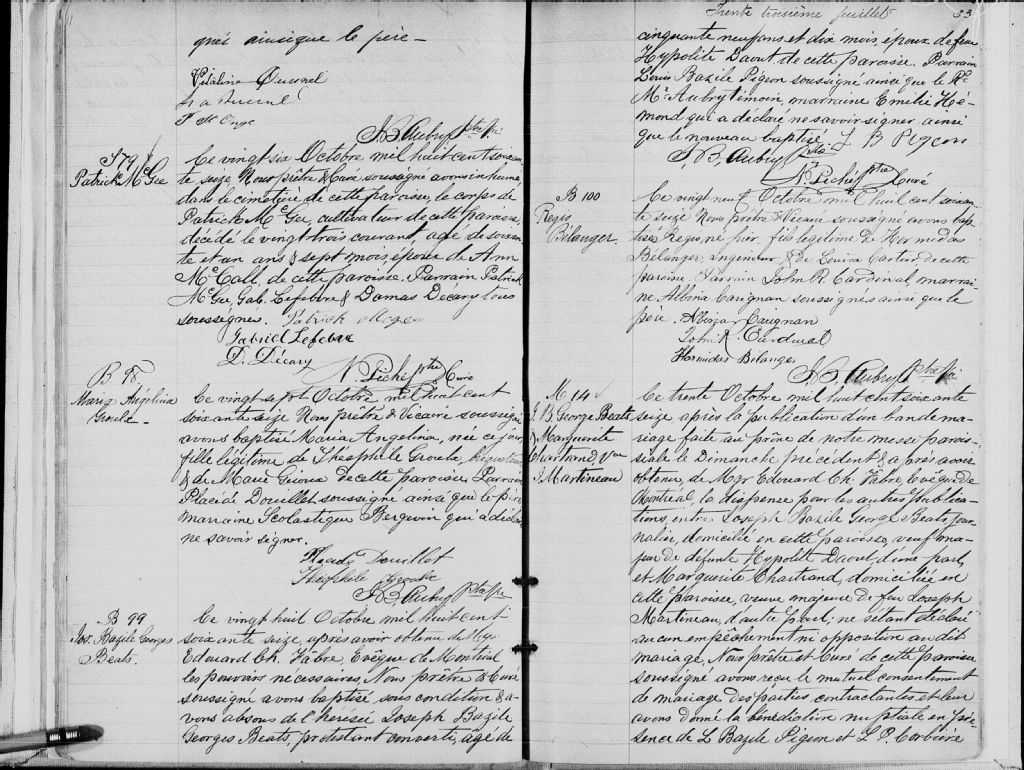 qués ainsi que le père -
Vitaline Quesnel
P St Onge
JB Aubry Ptre Vic
S 79
Patrick McGee
Ce vingt six Octobre mil huit cent soixan-
te seize Nous prêtre & Curé soussigné avons inhumé
dans le cimetière de cette paroisse, le corps de
Patrick McGee, cultivateur de cette paroisse
décédé le vingt trois courant, agé de soixan-
te et un ans & sept mois, époux de Ann
McCall, de cette paroisse. Parrain Patrick
McGee, Gab. Lefebvre & Damas Décary tous
soussignés. Patrick Mcgee
Gabriel Lefebvre
D. Décary
N. Piché ptre Curé
B 98
Maria Angélina
Groulx -
Ce vingt sept Octobre mil huit cent
soixante seize Nous prêtre & Vicaire soussigné
avons baptisé Maria Angelina, née ce jour
fille légitime de Théophile Groulx,
& de Marie Giroux de cette paroisse Parrain
Placide Douillet soussigné ainsi que le père
marraine Scolastique Bergevin qui a déclaré
ne savoir signer.
Placide Douillet
Théophile Groulx
JB Aubry Ptre Vic
B 99
Jos. Bazile Georges
Beats.
Ce vingt huit Octobre mil huit cent
soixante seize, après avoir obtenu de Mgr
Edouard Ch. Fâbre, Evêque de Montréal
les pouvoirs necessaires, Nous prêtre & Curé
soussigné avons baptisé sous condition & a-
vons absous de l'heresie Joseph Bazile
Georges Beats, protestant converti, agé de
Trente troisième feuillet 33
cinquante neuf ans et dix mois, époux de feue
Hypolite Daout de cette paroisse. Parrain
Louis Bazile Pigeon soussigné ainsi que le Rd
Mr Aubry témoin, marraine Emélie Hé-
mond qui a déclaré ne savoir signer ainsi
que le nouveau baptisé L B Pigeon
JB. Aubry Ptre
N. Piché ptre Curé
B 100
Regis
Bélanger
Ce vingt neuf Octobre mil huit cent soixan-
te seize Nous prêtre & Vicaire soussigné avons bap-
tisé Regis, né hier, fils legitime de Hermidas
Bélanger, Ingenieur & de Louisa Cartier de cette
paroisse. Parrain John R. Cardinal, marrai-
ne Albina Carignan soussignés ainsi que le
père. Albina Carignan
John R. Cardinal
Hermidas Bélanger
JB. Aubry Ptre Vic
M 14
J. B. George Beats
& Marguerite
Chartrand, Vve
J Martineau
Ce trente Octobre mil huit cent soixante
seize après la publication d'un band de ma-
riage faite au prône de notre messe parois-
siale le Dimanche précédent & après avoir
obtenu, de Mgr Edouard Ch. Fâbre, Evêque de
Montréal, la dispense pour les autres publica-
tions, entre Joseph Bazile George Beats, jour-
nalier, domicilié en cette paroisse, veuf ma-
jeur de défunte Hypolite Daout, d'une part,
et Marguerite Chartrand, domiciliée en
cette paroisse, veuve majeure de feu Joseph
Martineau, d'autre part; ne s'étant déclaré
aucun empêchement ni opposition au dit
mariage, Nous prêtre et Curé de cette paroisse
soussigné avons reçu le mutuel consentement
de mariage des parties contractantes et leur
avons donné la bénédiction nuptiale en pré-
sence de L Bazile Pigeon et L P. Corbière